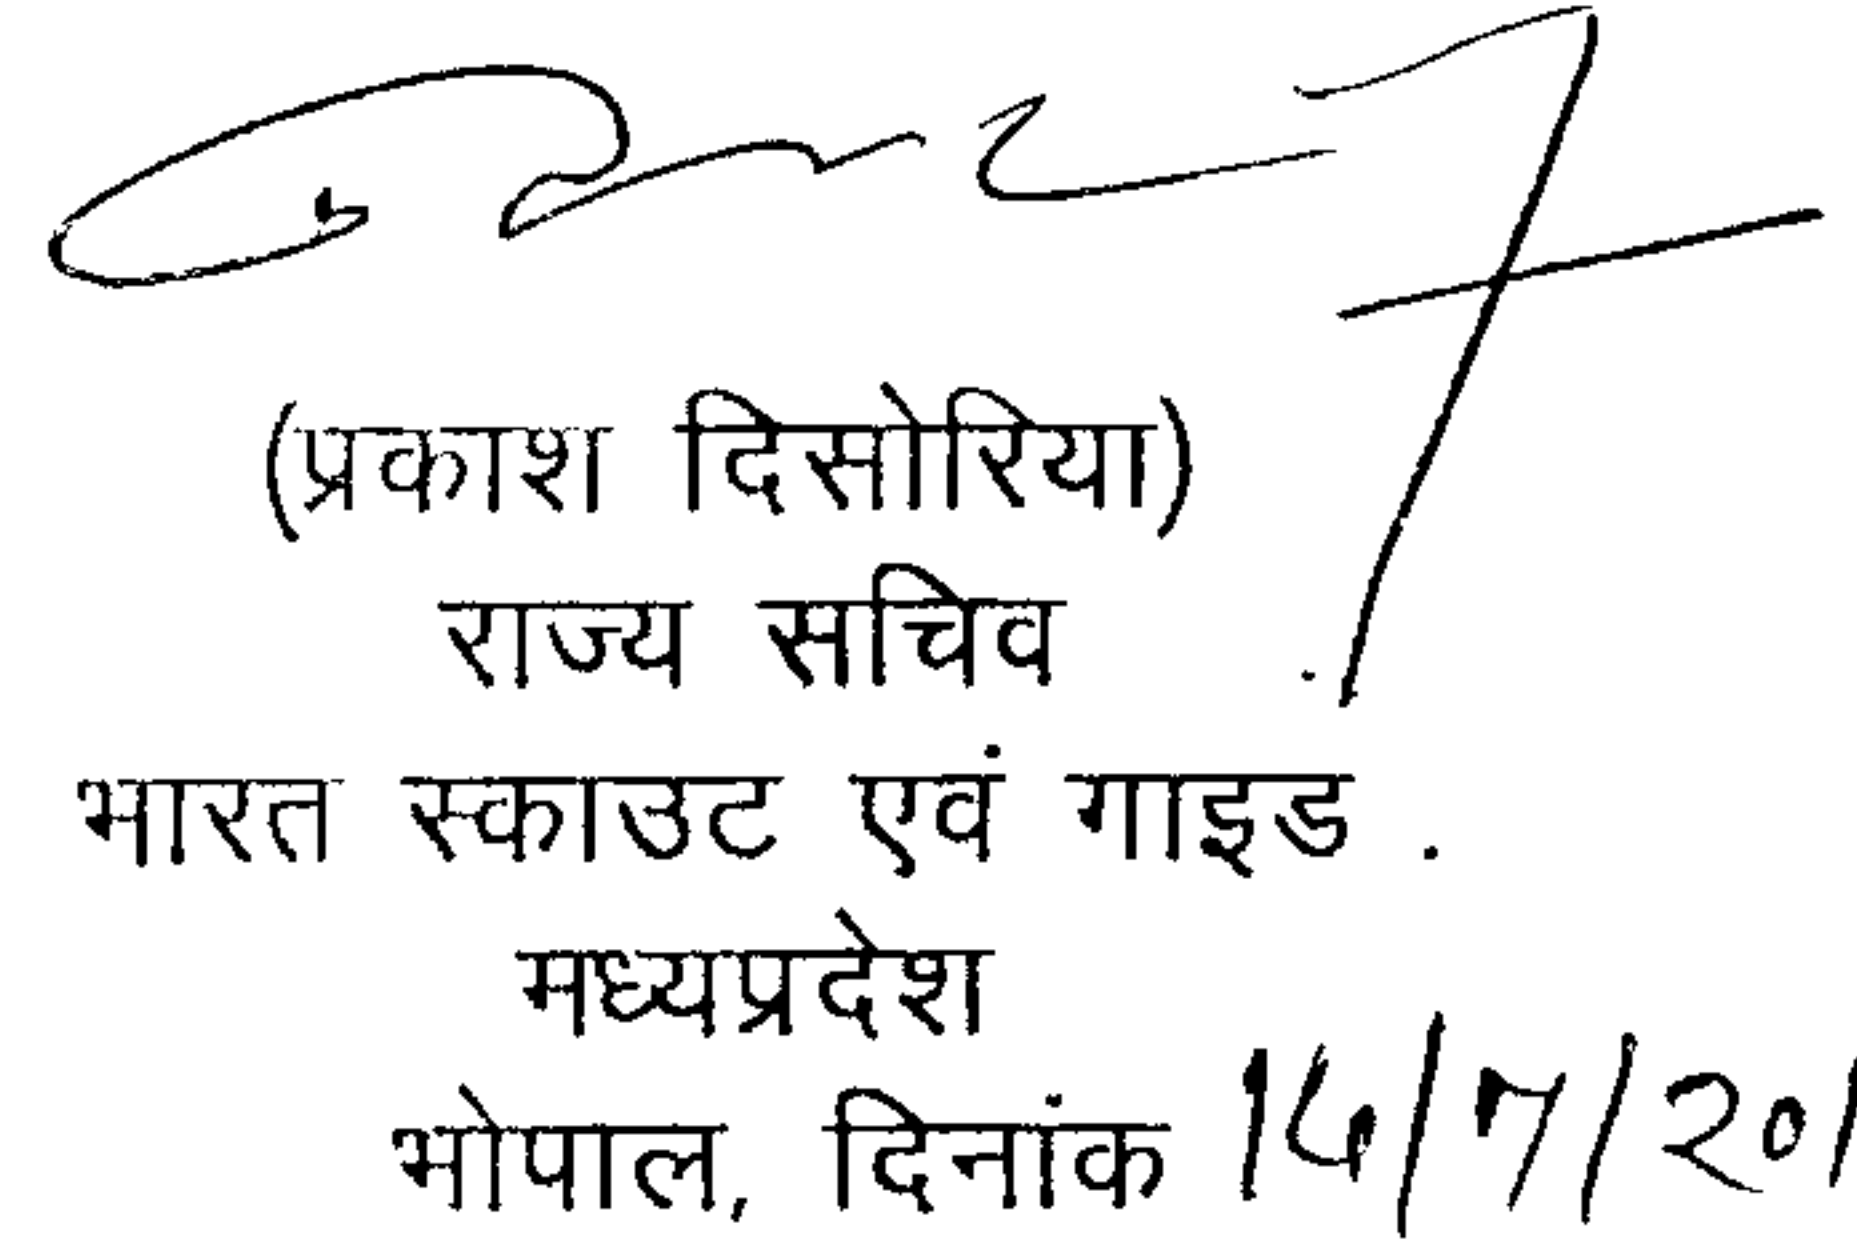 (प्रकाश दिसोरिया)
राज्य सचिव
भारत स्काउट एवं गाइड .
मध्यप्रदेश
भोपाल, दिनांक 16/7/201